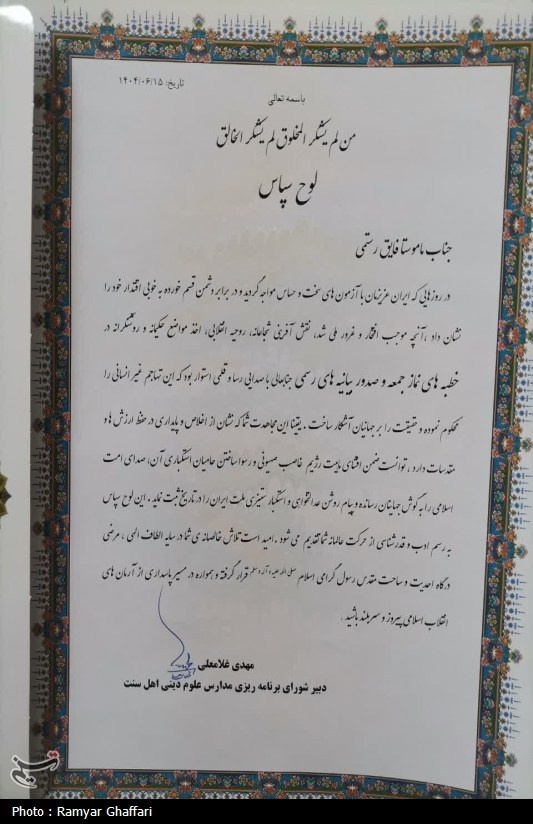 تاریخ: ۱۴۰۴/۰۶/۱۵
باسمه تعالی
من لم یشکر المخلوق لم یشکر الخالق
لوح سپاس
جناب ماموستا فایق رستمی
در روزهایی که ایران عزیزمان با آزمون های سخت و حساس مواجه گردید و در برابر دشمن قسم خورده به خوبی اقتدار خود را
نشان داد ، آنچه موجب افتخار و غرور ملی شد، نقش آفرینی شجاعانه، روحیه انقلابی، اخذ مواضع حکیمانه و روشنگرانه در
خطبه های نماز جمعه و صدور بیانیه های رسمی جنابعالی با صدایی رسا و قلمی استوار بود که این تهاجم غیر انسانی را
محکوم نموده و حقیقت را بر جهانیان آشکار ساخت . یقینا این مجاهدت شما که نشان از اخلاص و پایداری در حفظ ارزش ها و
مقدسات دارد ، توانست ضمن افشای ماهیت رژیم غاصب صهیونی و رسوا ساختن حامیان استکباری آن، صدای امت
اسلامی را به گوش جهانیان رسانده و پیام روشن عدالتخواهی و استکبار ستیزی ملت ایران را در تاریخ ثبت نماید . این لوح سپاس
به رسم ادب و قدرشناسی از حرکت عالمانه شما تقدیم می شود . امید است تلاش خالصانه ی شما در سایه الطاف الهی ، مرضی
درگاه احدیت و ساحت مقدس رسول گرامی اسلام صلی الله علیه و آله و سلم قرار گرفته و همواره در مسیر پاسداری از آرمان های
انقلاب اسلامی پیروز و سربلند باشید .
مهدی غلامعلی
دبیر شورای برنامه ریزی مدارس علوم دینی اهل سنت
Photo : Ramyar Ghaffari